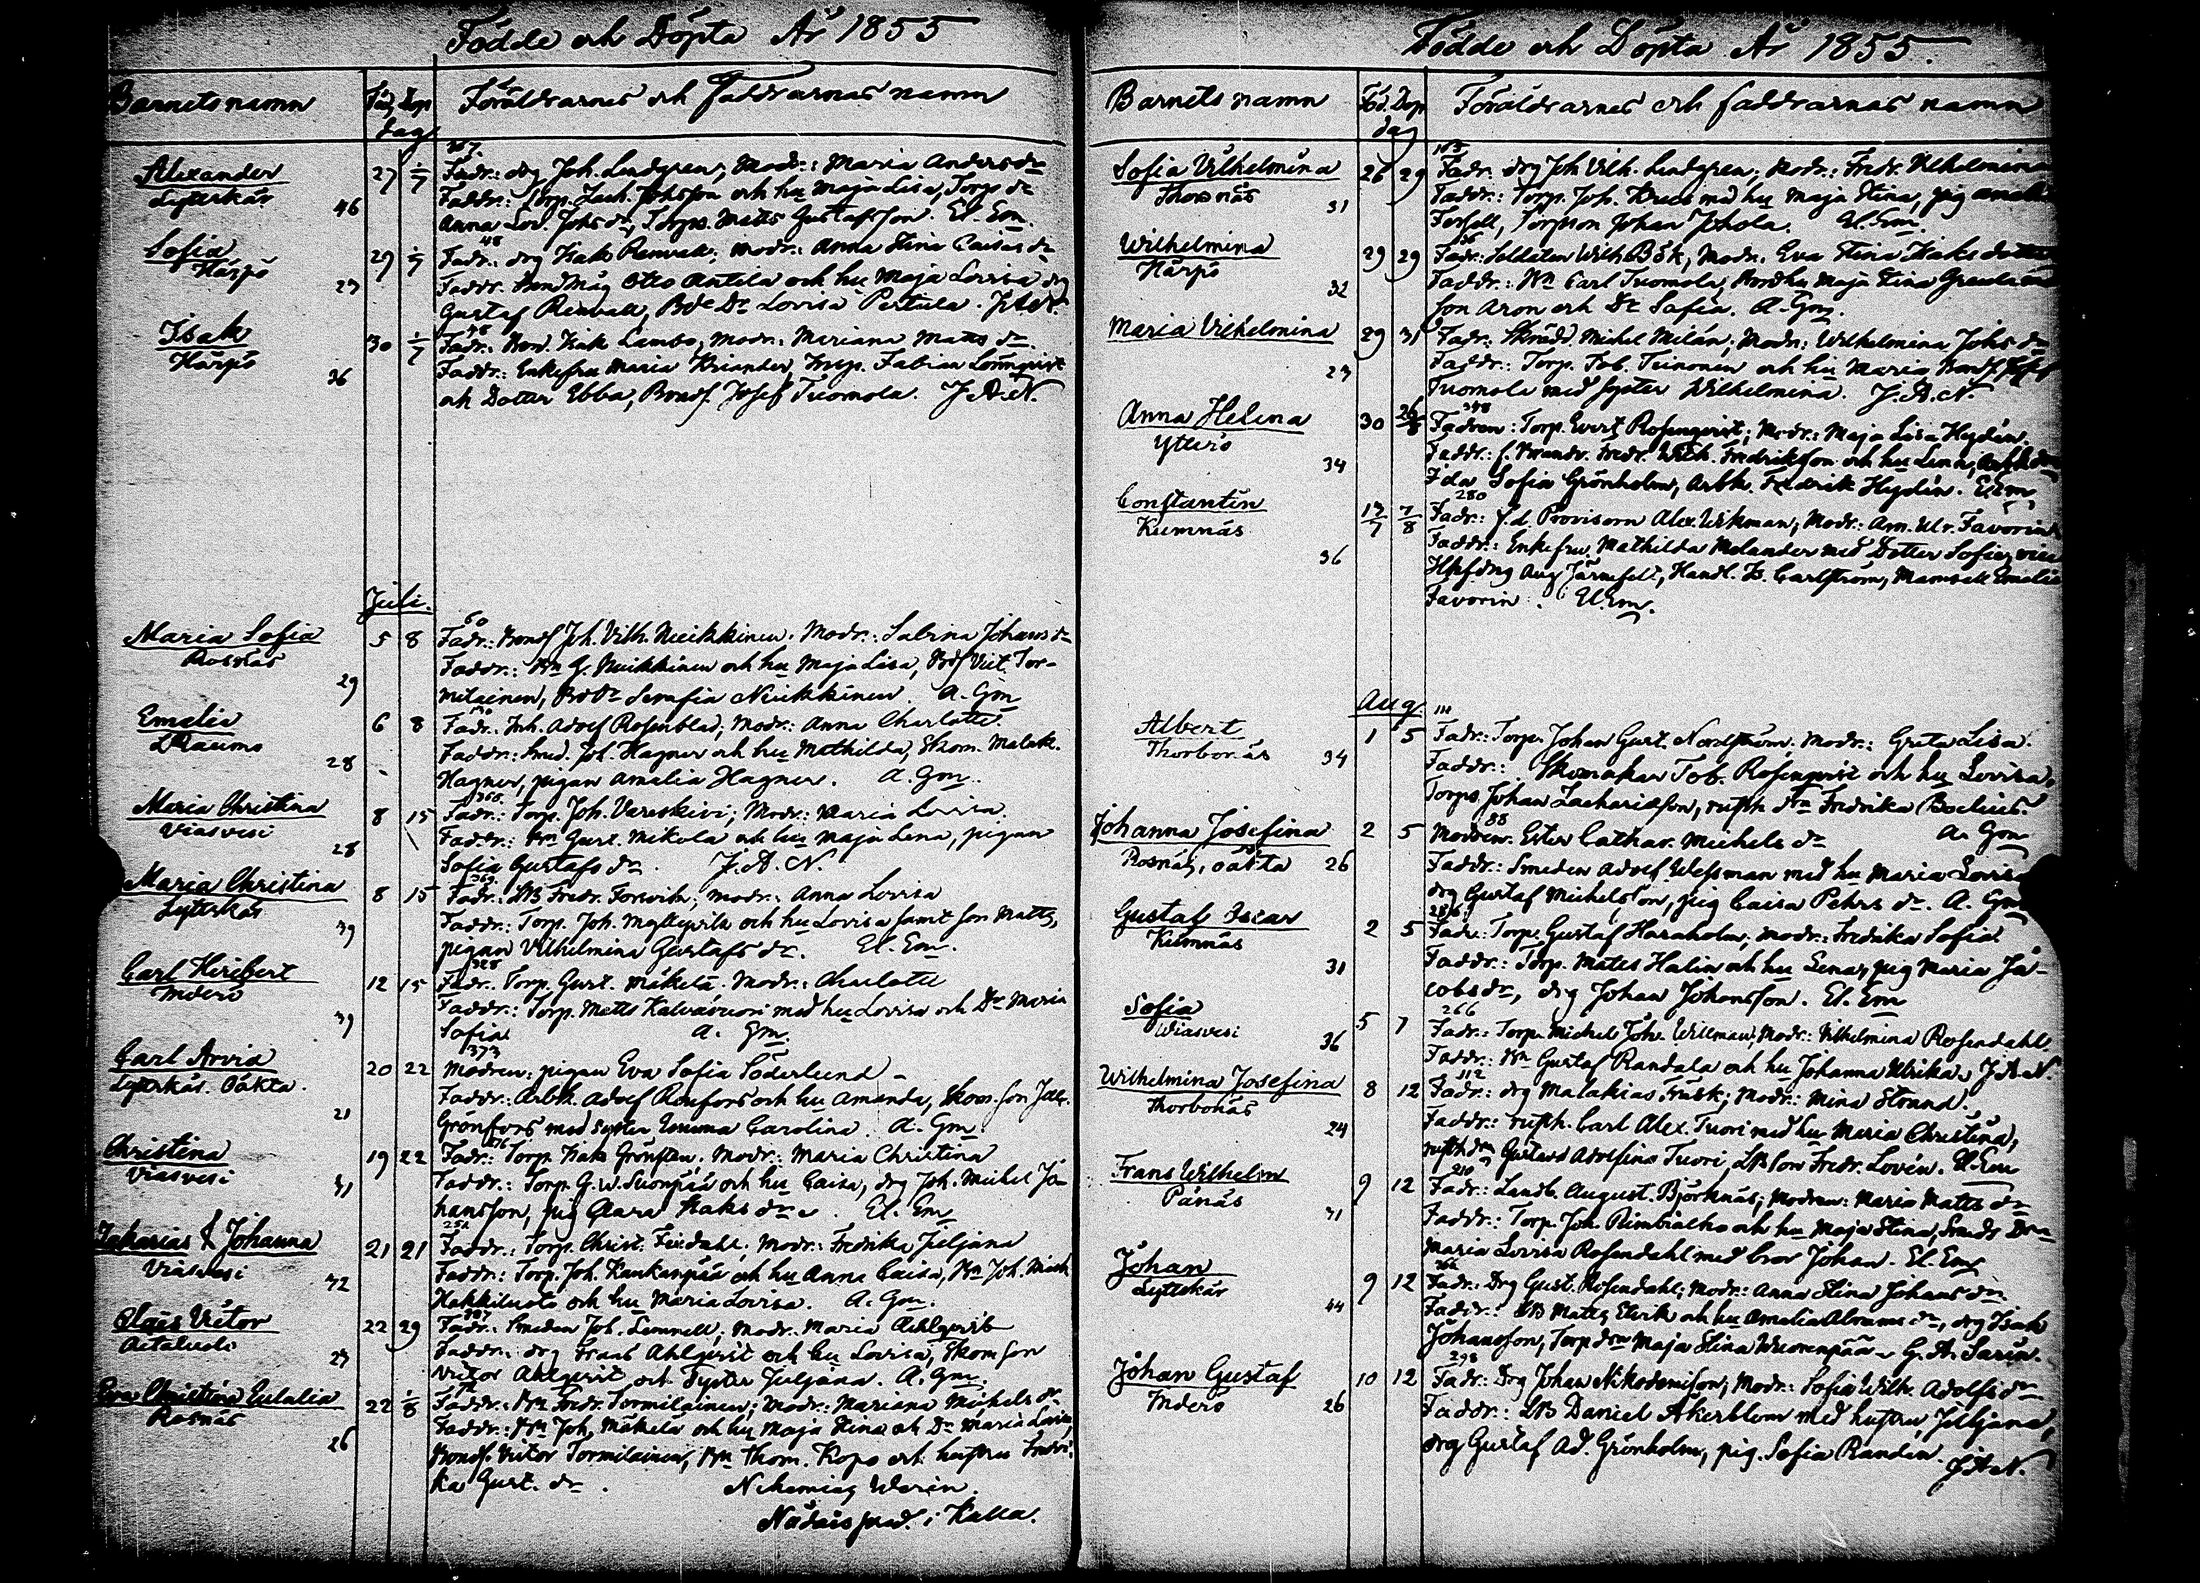 Födde och Döpta År 1855
Barnets namn Föd. Dop dag Föräldrarnes och Faddrarnas namn
Alexander 27 1/7 Fadr.: drg Joh. Lindgren; Modr.: Maria Anders dr
Lyttskär 46 Faddr.: Torp. Zach. Johsson och hu Maja Lisa, Torp dr
Anna Lov. Johs dr, Torps. Matts Gustafsson. El. Em.
48
Sofia 29 1/7 Fadr.: drg Isak Renvall; Modr.: Anna Stina Caisas dr
Härpö 27 Faddr. Bond Måg Otto Antila och hu Maja Lovisa drg
Gustaf Renvall, Bde Dr Lovisa Pertula.
48
Isak 30 1/7 Fadr. Bond Isak Lambo, Modr.: Mariana Matts dr
Härpö 36 Faddr.: Enkefru Maria Kriander, Insp. Fabian Lönnqvist
och Dotter Ebba, Bondf. Josef Tuomola. J. A. N.
Juli.
60
Maria Sofia 5 8 Fadr.: Bondf Joh. Vilh. Neuikkinen. Modr.: Sabrina Johans dr
Rosnäs 29 Faddr.: Bn G. Neuikkinen och hu Maja Lisa, Bdf Vict. Tor-
milainen, Bd Dr Serafia Neuikkinen. A. Gm
Emelia 6 8 Fadr. Inh. Adolf Rosenblad; Modr: Anna Charlotte.
LRaumo 28 Faddr: Smed. Joh. Hagner och hu Mathilda, Skom. Malak.
Hagner, pigan Amalia Hagner. A. Gm.
Maria Christina 8 15 Fadr.: Torp. Joh. Vareskivi; Modr: Maria Lovisa.
Viasvesi 28 Faddr.: Bn Gust. Mikola och hu Maja Lena, pigan
Sofia Gustafs dr. J. A. N.
369
Maria Christina 8 15 Fadr.: LB Fredr. Forsvik; Modr.: Anna Lovisa
Lyttskär 39 Faddr.: Torp. Joh. och hu Lovisa samt son Matts,
pigan Vilhelmina Gustafs dr. El. Em.
328
Carl Heribert 12 15 Fadr. Torp. Gust. Mäkelä. Modr.: Charlotte
Inderö 39 Faddr.: Torp. Matts Kalvávuori med hu Lovisa och Dr Maria
Sofia A. Gm.
373
Carl Arvid 20 22 Modren: pigan Eva Sofia Söderlund
Lyttskär. Oäkta. 21 Faddr: Arbk. Adolf Renfors och hu Amanda, Skom. son
Grönfors med syster Emma Carolina. A. Gm.
Christina 19 22 Fadr.: Torp Isak Grönsten. Modr.: Maria Christina
Viasvesi 31 Faddr.: Torp. G. W. Suonpää och hu Caisa, drg Joh. Michel Jo-
hansson, pig Clara Isaks dr. El. Em
Zakarias & Johanna 21 21 Faddr.: Torp. Christ. Feudahl; Modr: Fredrika Juljana
Viasvesi 42 Faddr.: Torp. Joh. Kaukanpää och hu Anna Caisa, Bn Joh. Mich
Hakkiluoto och hu Maria Lovisa. A. Gm.
Claës Victor 22 29 Fadr: Smeden Joh. Lemnell; Modr. Maria Ahlqvist
23 Faddr.: drg Frans Ahlqvist och hu Lovisa, Skom son
Victor Ahlqvist och Syster Juljana. A. Gm.
Eva Christina Eulalia 22 1/8 Faddr.: Bn Fredr. Tormilainen; Modr: Mariana Michels dr
Rosnäs 26 Faddr: Bn Joh. Mäkelä och hu Maja Stina och Dr Maria Lovisa,
Bondf. Victor Tormilainen, Bn Thom. Kopo och hustru Fredri-
ka Gust. dr. Nehemias Werin.
Nådårspred. i Kalla.
Födde och Döpta År 1855.
Barnets namn Föd. Dop dag Föräldrarnes och faddrarnas namn
103
Sofia Vilhelmina 26 29 Fadr. drg Joh Vilh. Lindgren; Modr.: Fredr. Vilhelmina
Thorsnäs 31 Faddr: Torp. Joh. Kruus med hu Maja Stina, pig Amalia
Forsell, Torpson Johan Johola. El. Em.
36
Wilhelmina 29 29 Fadr: Soldaten Wilh. Bök, Modr. Eva Stina Isaks dotter
Härpö 32 Faddr.: Bn Carl Tuomola, Bond hu Maja Stina
son Aron och Dr Sofia. A. Gm.
Maria Vilhelmina 29 31 Fadr: Skrädd. Michel Milán; Modr: Wilhelmina Johs dr
23 Faddr.: Torp. Tob. Teinonen och hu Maria Bondf. Josef
Tuomola med syster Wilhelmina. J. A. N.
348
Anna Helena 30 26/8 Fadren: Torp. Evert Rosenqvist; Modr: Maja Lisa Hydén.
Ytterö 34 Faddr.: f. Brandv. Fredr. Wilh. Fredriksson och hu Lena, Arbk dr
Ida Sofia Grönholm, Arbk. Fredrik Hydén. El. Em
280
Constantin 17/7 7/8 Fadr.: f.d. Provisorn Alex. Wikman; Modr: Am. Ulr. Favorin
Kumnäs 36 Faddr.: Enkefru Mathilda Melander med Dotter Sofia,
Aug Järnefelt, Handl. Is. Carlström, Mamsell Emelie
Favorin. El. Em.
Aug.
111
Albert 1 5 Fadr: Torp. Johan Gust. Nordström. Modr.: Greta Lisa.
Thorbonäs 34 Faddr: Skomakar Tob. Rosenqvist och hu Lovisa,
Torps. Johan Zachariasson, Fredrika Boelius.
88
Johanna Josefina 2 5 Modren. Ester Cathar. Michels dr A. Gm
Rosnäs, oäkta 26 Faddr: Smeden Adolf Wessman med hu Maria Lovisa
drg Gustaf Michelsson, pig Caisa Pehrs dr. A. Gm
286
Gustaf Oscar 2 5 Fadr.: Torp. Gustaf Haraholm; Modr.: Fredrika Sofia
Kumnäs 31 Faddr.: Torp. Matts Halin och hu Lena, pig Maria Ja-
cobs dr, drg Johan Johansson. El. Em
266
Sofia 5 7 Fadr.: Torp. Michel Joh. Willman; Modr: Vilhelmina Rosendahl
Wiasvesi 36 Faddr.: Bn Gustaf Randala och hu Johanna Ulrika. J. A. N.
112
Wilhelmina Josefina 8 12 Fadr.: drg Malakias Träsk; Modr: Mina Strand.
Thorbonäs 24 Faddr.: Carl Alex. Tuori med hu Maria Christina,
Gustava Adolfina Tuori, LB son Fredr. Lovén. El. Em
210
Frans Wilhelm 9 12 Fadr: Landb. August. Björknäs; Modren: Maria Matts dr
Pånäs 31 Faddr.: Torp. Joh. Rimbialho och hu Maja Stina, Smeds Dr
Maria Lovisa Rosendahl med bror Johan. El. Em
Johan 9 12 Fadr: Drg Gust. Rosendahl; Modr: Anna Stina Johans dr
Lyttskär 44 Faddr.: LB Matts Elvik och hu Amalia Abrams dr, drg Isak
Johansson, Torp drn Maja Stina Wuorenpää. G. A. Sarin.
298
Johan Gustaf 10 12 Fadr: Drg Johan Nikodemison; Modr: Sofia Wilh. Adolfs dr
Inderö 26 Faddr.: LB Daniel Åkerblom med hustru Juljana,
drg Gustaf Ad. Grönholm, pig. Sofia Randen. J A N.